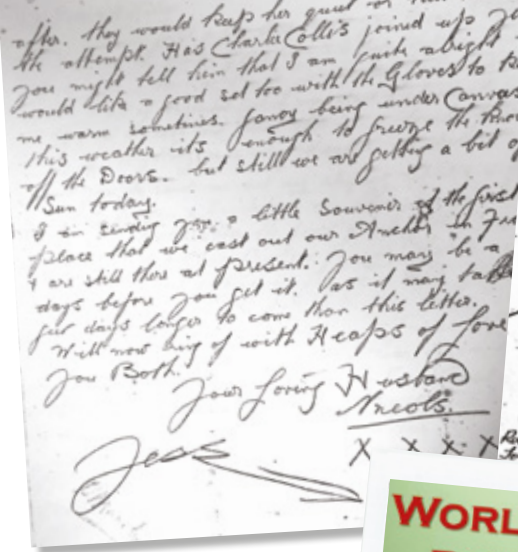 after. they would keep her quiet or
the attempt. Has Charlie Collis joined up
you might tell him that I am quite alright
would like a good set too with the Gloves to
me warm sometimes. fancy being under Canvas
this weather its enough to freeze the
off the Doors. but still we are getting a bit of
Sun today.
I am sending you a little Souvenir of the first
place that we cast out our Anchor in
& are still there at present. You may be a
days before you get it. as it may
few days longer to come than this letter.
Will now ring of with Heaps of Love
You Both.
Your Loving Husband
Jess
X X X X
WORL